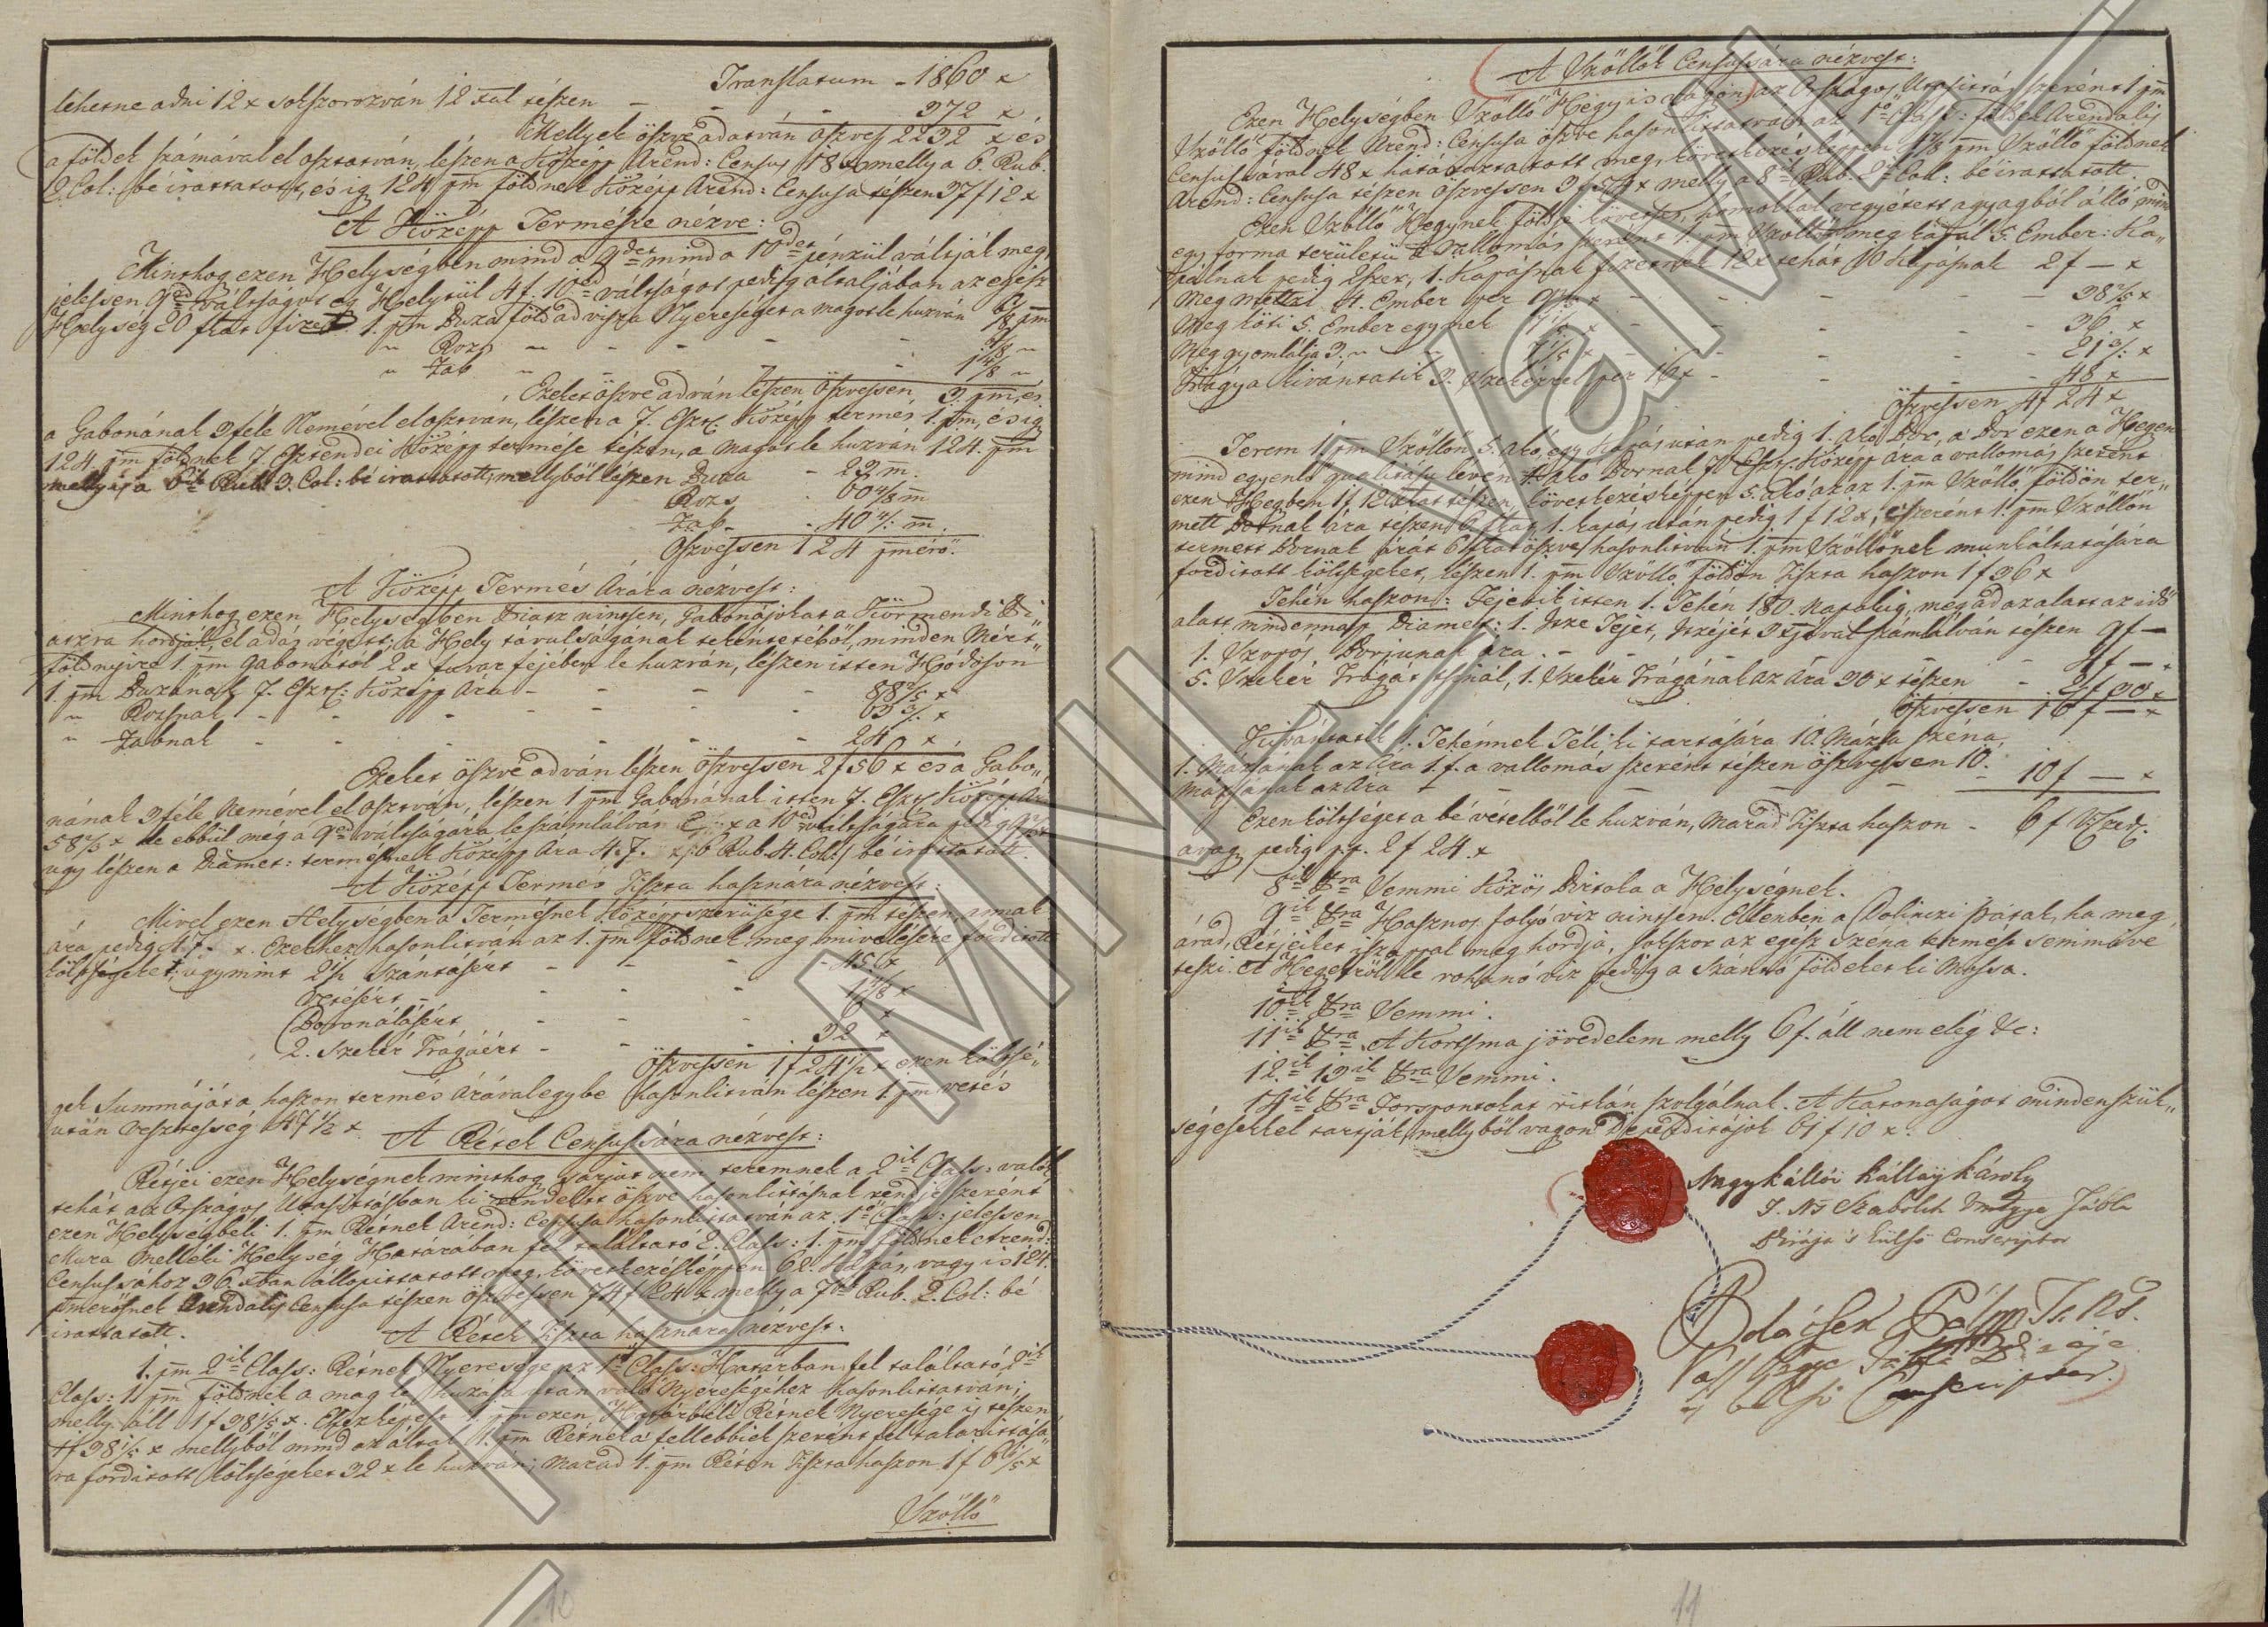 Translatum - 1860 x
lehetne adni 12 x sokszorozván 12 xal tészen - - - 372 x
Mellyek öszve adatván öszves 2232 x és
a földek számával el osztatván, lészen a Közép Arend: Census 18 x melly a 6. Rub.
2 Col: bé irattatott, és ig 124 pm földnek Közép Arend: Censusa tészen 37 f 12 x
A Közép Termésre nézve:
Minthog ezen Helységben mind a 9det mind a 10det pénzül váltják meg,
jelessen 9ed váltságot eg Helytül 4 f. 10ed váltságot pedig általjában az egész
Helység 20 ftat fizet 1. pm Buza föld ad vissza Nyereséget a magot le huzván 6/8 pm
" Rozs - - - - -
" Zab - - - - 1 4/8 "
Ezeket öszve adván lészen öszvessen 3. pm, és
a Gabonának 3 féle Nemével elosztván, lészen a 7. Eszt. Közép termés 1. pm, és ig
124. pm földnek 7 Esztendei Közép termése tészen, a magot le huzván 124. pm
melly is a 6ik Rub. 3. Col: bé irattatott, mellyböl lészen Buza - 23. m.
Rozs - 60 4/8 m
Zab - 40 4/8 m.
Öszvessen 124 pmérö.
A Közép Termés Árára nézvest:
Minthog ezen Helységben Piatz nintsen, Gabonájokat a Körmendi Pi„
atzra hordják, el adás végett; a Hely távulságának tekintetéböl, minden Mért„
földnyire 1. pm gabonától 2 x fuvar fejében le huzván, lészen itten Hódoson
1. pm Buzának 7. Eszt: Közép Ára - - - - - 88 2/5 x
" Rozsnak - - - - - 63 3/5 x
" Zabnak - - - - - 24 x
Ezeket öszve adván lészen öszvessen 2 f 56 x és a Gabo„
nának 3 féle Nemével el osztván, lészen 1 pm Gabonának itten 7. Eszt. Közép Ára
58 2/3 x de ebbül meg a 9ed váltságára le számlálván x a 10ed váltságára
ugy lészen a Diamet: termésnek Közép Ára 47. x, 6 Rub. 4. Col: bé irattatott.
A Közép Termés Tiszta hasznára nézvest:
Mivel ezen Helységben a Termésnek Közép szerüsége 1. pm tészen, annak
ára pedig 47. x. Ezekhez hasonlitván az 1. pm földnek meg mivelésére forditott
költségeket; ugymint 2 1/2 Szántásért - - - 45 x
Vetésért - - - 1 1/8 x
Boronálásért - - - 6 x
2. Szekér Trágáért - - - 32 x
Öszvessen 1 f 24 1/2 x ezen költsé„
gek Summáját a haszon termés Árával egybe hasonlitván lészen 1. pm vetés
után vesztesség 47 1/2 x.
A Rétek Censussára nézvest:
Rétjei ezen Helységnek minthog sarjut nem teremnek a 2ik Class: valók
tehát az Országos Utasittásban ki rendeltt öszve hasonlittásnak rendje szerént
ezen Helységbéli 1. pm Rétnek Arend: Censusa hasonlittatván az 1ö Class: jelessen
Mura Melléki Helység Határában fel találtató 2. Class: 1. pm földnek Arend:
Censussahoz 36 xban állapittatott meg, következésképpen 62. Kaszás, vagy is 124.
pmérösnek Arendalis Censusa tészen öszvessen 74 f 24 x melly a 7ik Rub. 2. Col: bé
irattatott.
A Rétek Tiszta hasznára nézvest:
1. pm 2ik Class: Rétnek Nyeresége az 1ö Class: Határban fel találtató 2ik
Class: 1. pm földnek a mag le huzása után való Nyereségéhez hasonlittatván;
melly áll 1 f 38 1/5 x. Ehezképest 1. pm ezen Határbéli Rétnek Nyeresége is tészen
1 f 38 1/5 x mellyböl mind az által 1. pm Rétnek a fellebbiek szerént fel takarittásá„
ra forditott költségeket 32 x le huzván; marad 1. pm Réten Tiszta haszon 1 f 6 1/5 x
Szöllö
10
A Szöllök Censussára nézvest:
Ezen Helységben Szöllö Hegy is vagyon, az Országos Utasittás szerént 1 pm
Szöllö földnek Arend: Censusa öszve hasonlittatván az 1ö Class: földek Arendalis
Censussával 48 x határoztatott meg, következésképpen pm Szöllö földnek
Arend: Censusa tészen öszvessen 3 f 54 x melly a 8ik Rub. 2ik Col: bé irattatott.
Ezen Szöllö Hegynek földje köveses, homokkal vegyétett agyagból álló mind
egy forma területü a Vallomás szerént 1. pm Szöllöt meg kapál 5. Ember: Ka„
pálnak pedig 2szer, 1. Kapásnak fizetnek 12 x tehát 10 Kapásnak 2 f — x
Meg mettzi 4. Ember per 9 3/5 x - - - - 38 2/5 x
Meg köti 5. Ember egynek 7 1/5 x - - - - 36. x
Meg gyomlálja 3. " - 7 1/5 x - - - 21 3/5 x
Trágya kivántatik 3. Szekérrel per 16 x - - - 48 x
Öszvessen 4 f 24 x
Terem 1. pm Szöllön 5. akó, egy Kapás után pedig 1. akó Bor, a' Bor ezen a Hegen
mind egyenlö qualitásu lévén 1. akó Bornak 7. Eszt. Közép Ára a vallomás szerént
ezen Hegben 1 f 12 xkat tészen, következésképpen 5. akó az az 1. pm Szöllö földön ter„
mett Bornak ára tészen 6. ftat 1. kapás után pedig 1 f 12 x, e'szerént 1. pm Szöllön
termett Bornak árát 6 ftat öszve hasonlitván 1. pm Szöllönek munkáltatására
forditott költségeket, lészen 1. pm Szöllö földön Tiszta haszon 1 f 36 x
Tehén haszon: Fejetik itten 1. Tehén 180. Napokig, meg ád az alatt az idö
alatt mindennap Diamet: 1. Itze Tejet, Itzéjét 3 xjával számlálván tészen 9 f —
1. Szopós Borjunak ára - - - - 4 f — x
5. Szekér Trágát tsinál, 1. Szekér Trágának az Ára 30 x tészen - 2 f 30 x
Öszvessen 16 f — x
Kivántatik 1. Tehénnek Téli ki tartására 10. Mázsa széna,
1. Mázsának az Ára 1. f. a vallomás szerént tészen öszvessen 10.
Mázsának az Ára - - - - - 10 f — x
Ezen költséget a bé vételböl le huzván, marad Tiszta haszon - 6 f
avag pedig p.p. 2 f 24. x
8ik ra Semmi Közös Birtoka a Helységnek.
9ik ra Hasznos folyó viz nintsen. Ellenben a Dolinczi Patak, ha meg
árad, Rétjeiket iszappal meg hordja, sokszor az egész Széna termést semmivé
teszi. A Hegekröl le rohanó viz pedig a Szántó földeket ki Mossa.
10ik ra Semmi.
11ik ra A Kortsma jövedelem melly 6 f. áll nem elég &c:
12ik 13ik ra Semmi.
14ik ra Forspontokat ritkán szolgálnak. A Katonaságot mindenszük„
ségesekkel tartják, mellyböl vagon Deperditájok 61 f 10 x.
Nagykállói Kállay Károly
T. Ns Szabolch Vmegye Tábla
Birája 's külsö Conscriptor
Pálm. T. Ns.
Vas Vgye Tábla Birája
's belsö Conscriptor.
11